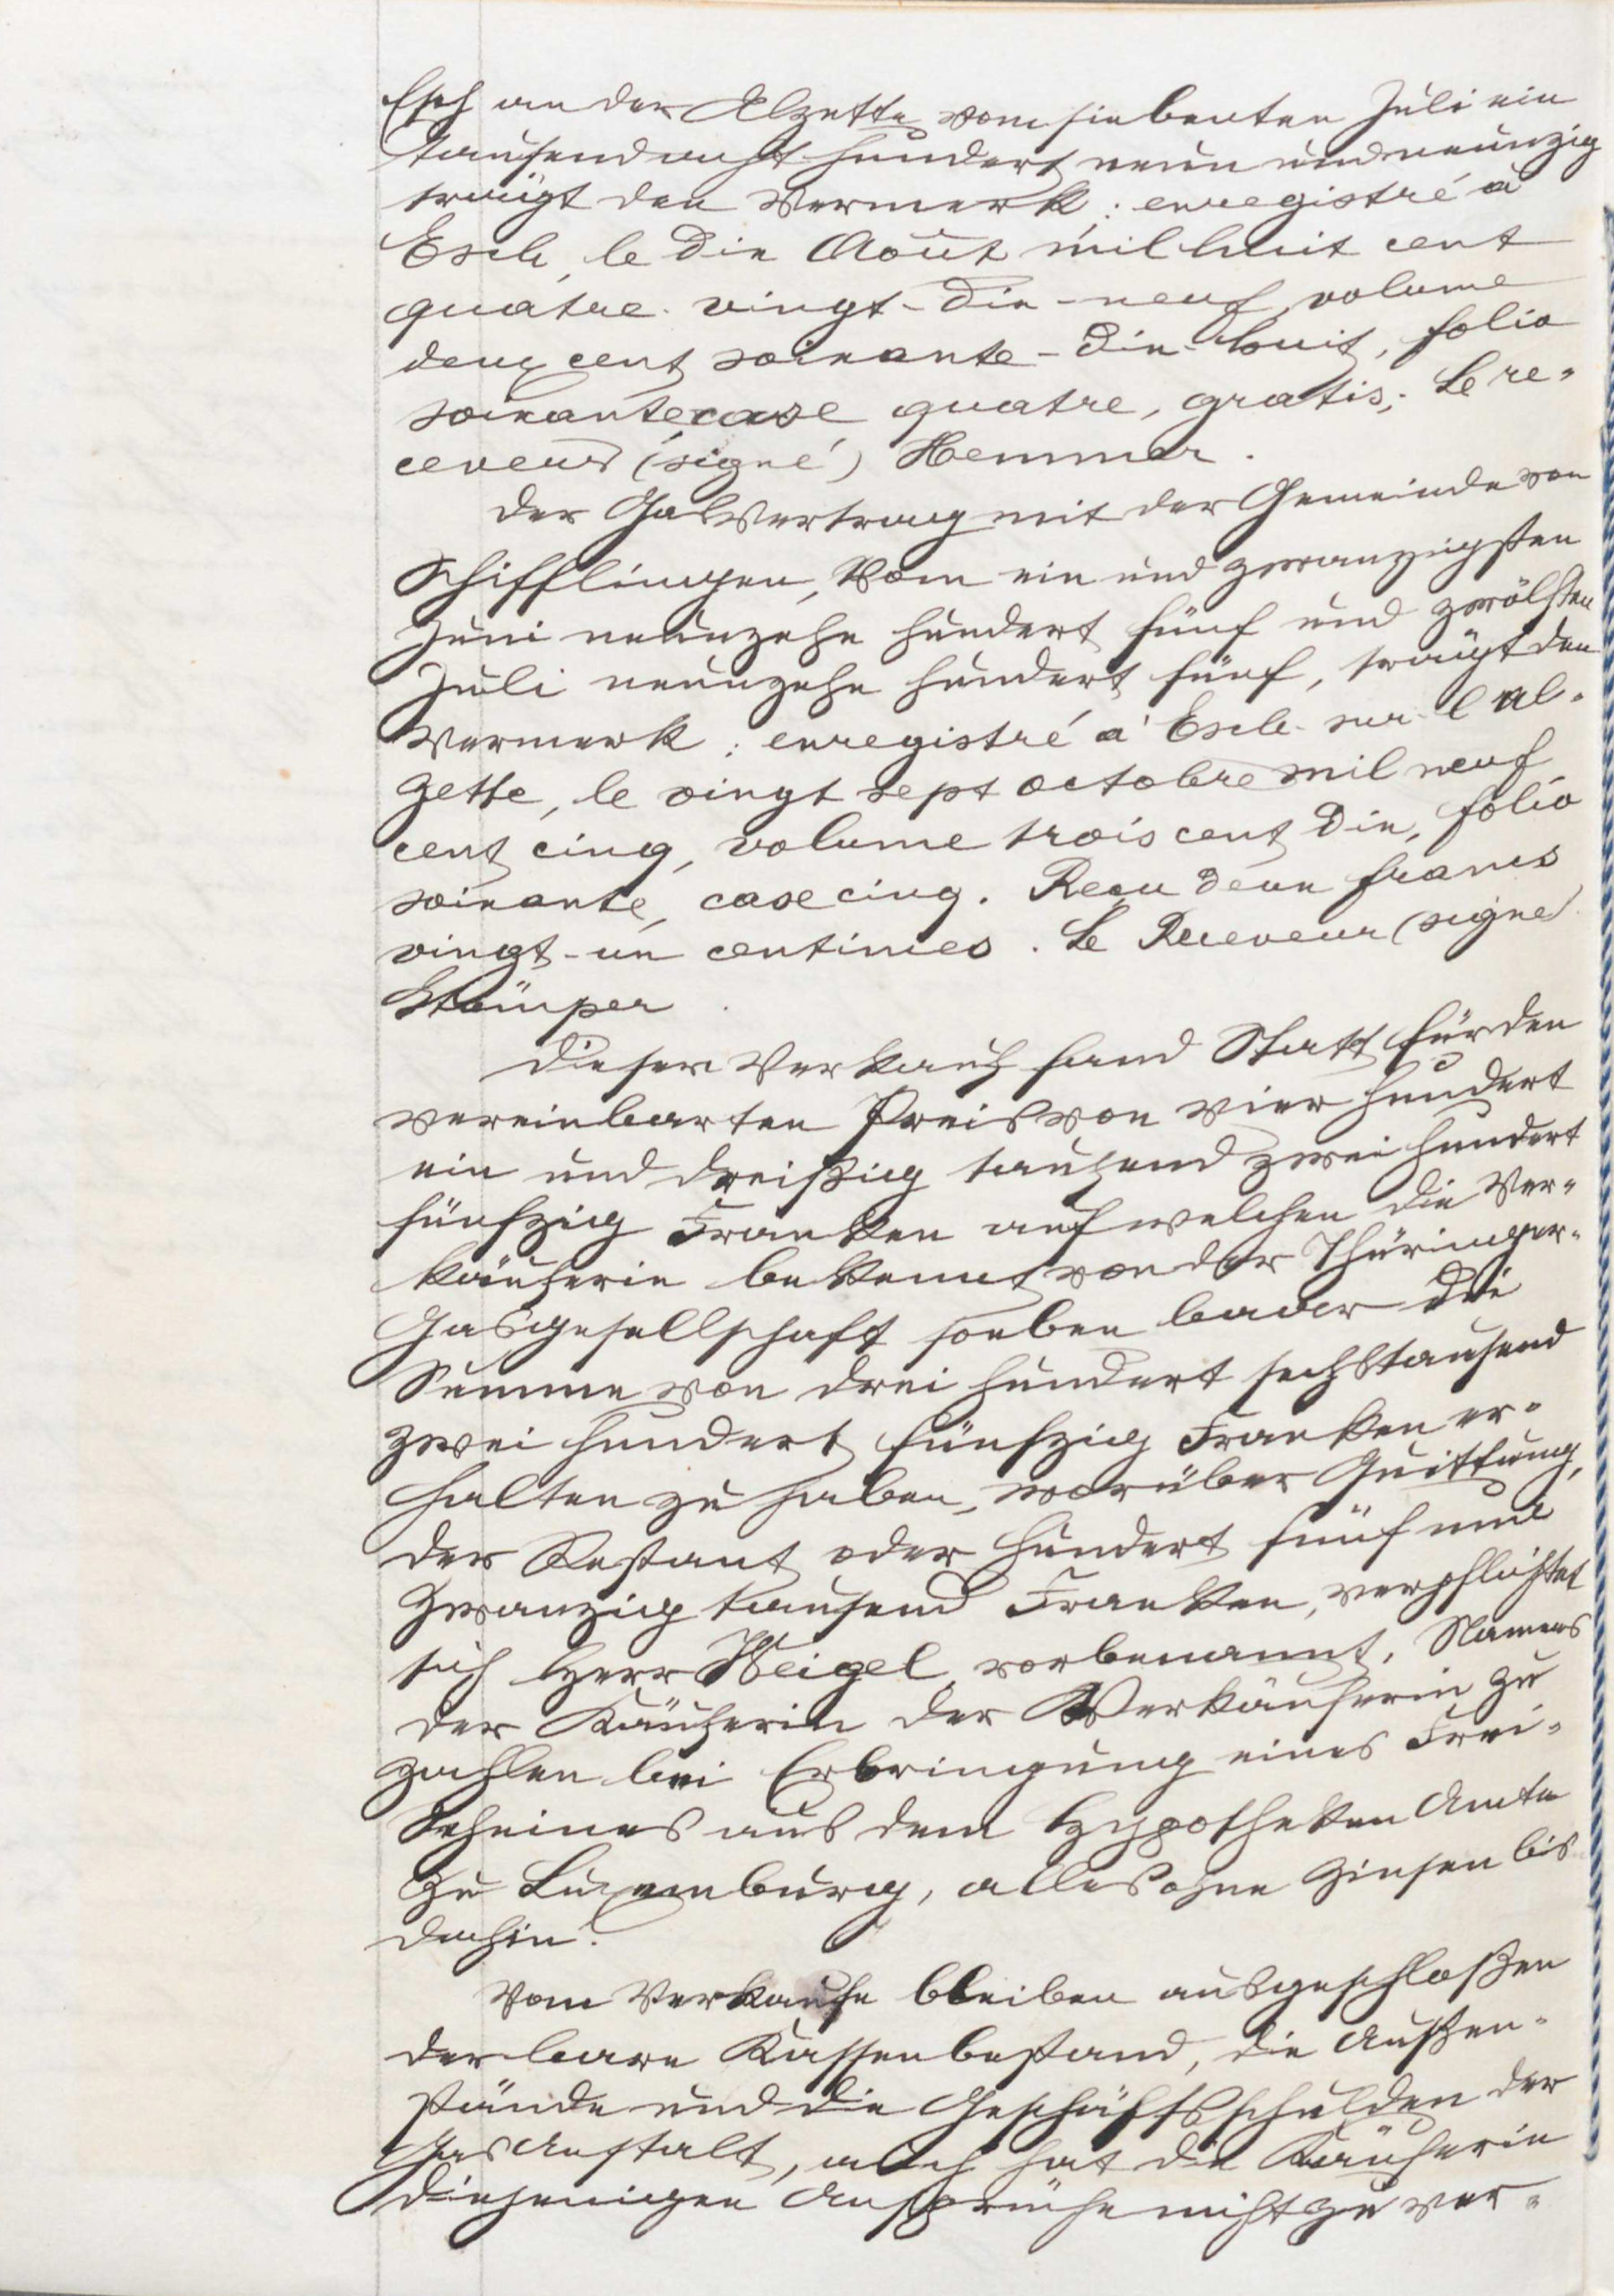 Esch an der Alzette vom siebenten Juli ein
tausend acht hundert neun und neunzig
trägt den Vermerk: enregistré à
Esch, le dix Août mil huit cent
quatre-vingt-dix-neuf, volume
deux cent soixante-dix-huit, folio
soixante case quatre, gratis; Le re-
ceveur (signé) Hemmer.
Der Gasvertrag mit der Gemeinde von
Schifflingen, vom ein und zwanzigsten
Juni neunzehn hundert fünf und zwölften
Juli neunzehn hundert fünf, trägt den
Vermerk: enregistré à Esch-sur-l'Al-
zette, le vingt sept octobre mil neuf
cent cinq, volume trois cent dix, folio
soixante, case cinq. Reçu deux francs
vingt-un centimes. Le Receveur (signé)
Stümper
Dieser Verkauf fand Statt für den
vereinbarten Preis von vier hundert
ein und dreißig tausend zwei hundert
fünfzig Franken auf welchen die Ver-
käuferin bekennt von der Thüringer-
Gasgesellschaft soeben baar die
Summe von drei hundert sechstausend
zwei hundert fünfzig Franken er-
halten zu haben, worüber Quittung,
der Restant oder hundert fünf und
zwanzig tausend Franken, verpflichtet
sich Herr Weigel, vorbenannt, Namens
der Käuferin der Verkäuferin zu
zahlen bei Erbringung eines Frei-
Scheines aus dem Hypotheken Amte
zu Luxemburg, alles ohne Zinsen bis
dahin.
Vom Verkaufe bleiben ausgeschloßen
der bare Kassenbestand, die Außen-
stände und die Geschäftsschulden der
Gasanstalt, auch hat die Käuferin
diejenigen Ansprüche nicht zu ver-